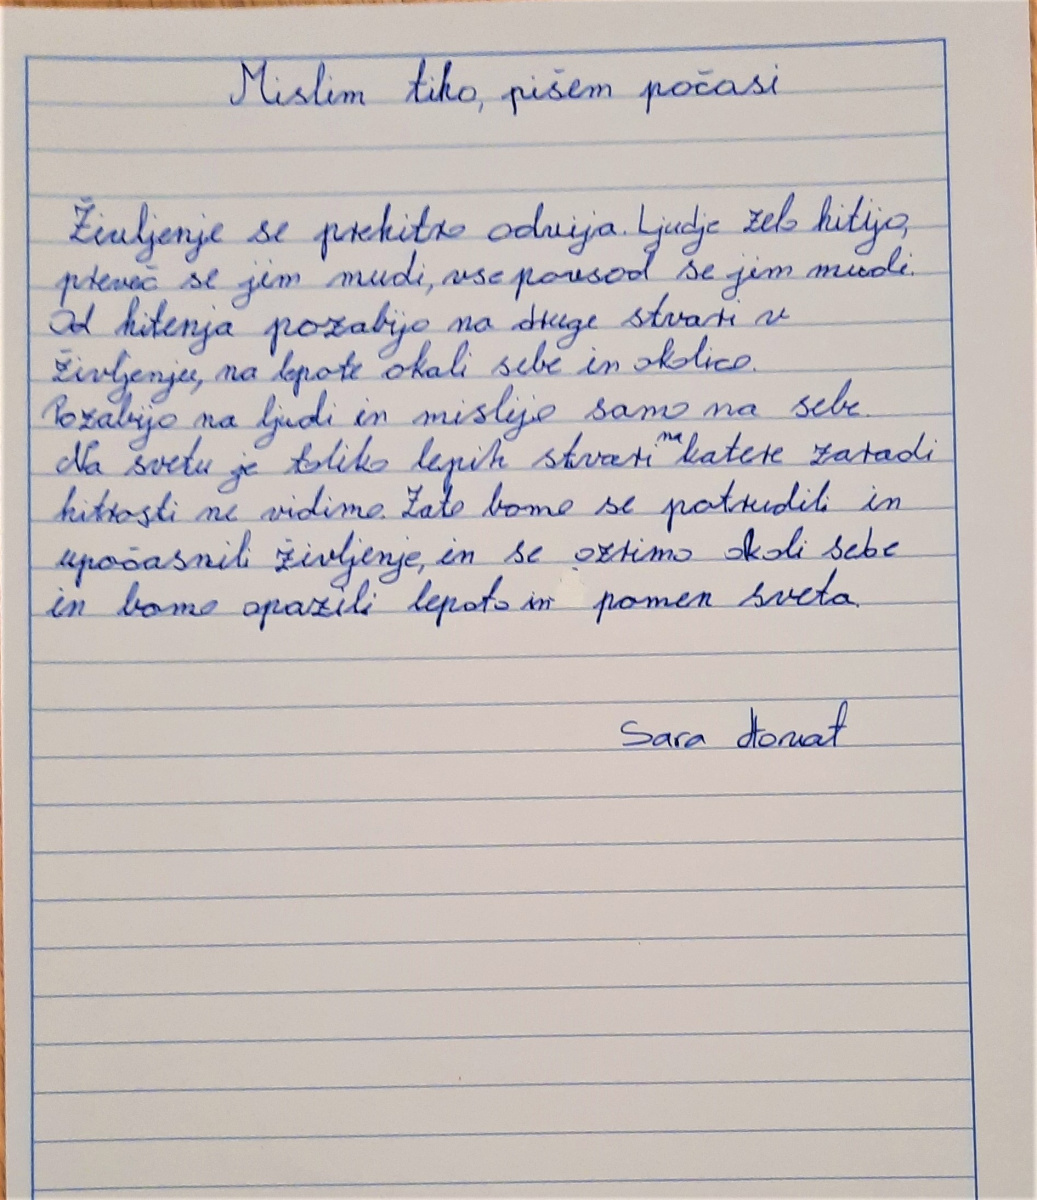 Mislim tiho, pišem počasi
Življenje se prehitro odvija. Ljudje zelo hitijo,
preveč se jim mudi, vse povsod se jim mudi.
Od hitenja pozabijo na druge stvari v
življenju, na lepote okoli sebe in okolico.
Pozabijo na ljudi in mislijo samo na sebe.
Na svetu je toliko lepih stvari na katere zaradi
hitrosti ne vidimo. Zato bomo se potrudili in
upočasnili življenje, in se ozrimo okoli sebe
in bomo opazili lepoto in pomen sveta.
Sara Horvat